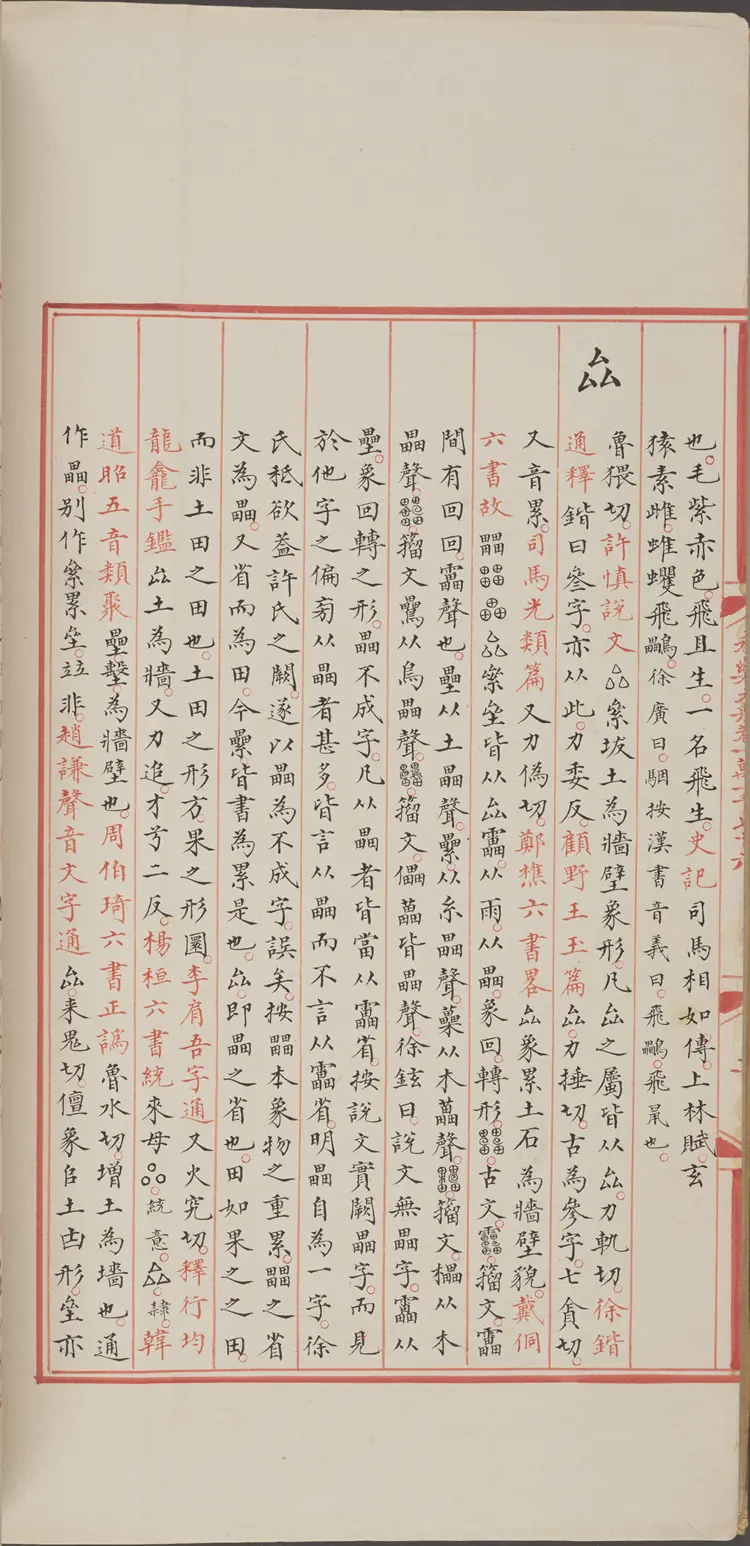 也。毛紫赤色。飛且生。一名飛生。史記司馬相如傳。上林賦。玄
猿素雌。蜼蠼飛鸓。徐廣曰。駰按漢書音義曰。飛鸓。飛鼠也。
厽
魯猥切。許慎說文厽絫坺土為牆壁象形。凡厽之屬皆从厽。力軌切。徐鍇
通釋鍇曰。叄字亦从此。力委反。顧野王玉篇厽。力捶切。古為參字。七貪切。
又音累。司馬光類篇又力偽切。鄭樵六書畧厽象累土石為牆壁貌。戴侗
六書故畾厽絫垒皆从厽靁。从雨。从畾。象回轉形。古文。籀文。靁
間有回回。靁聲也。壘从土畾聲。纍。从糸畾聲。蘽从木藟聲。籀文。櫑从木
畾聲。籀文鸓从鳥畾聲。籀文。儡藟皆畾聲。徐鉉曰。說文無畾字。靁从
壘。象回轉之形。畾不成字。凡从畾者皆當从靁省。按說文實闕畾字。而見
於他字之偏旁从畾者甚多。皆言从畾而不言从靁省。明畾自為一字。徐
氏秪欲蓋許氏之闕。遂以畾為不成字。誤矣。按畾本象物之重累。畾之省
文為畾。又省而為田。今纍皆書為累是也。厽。即畾之省也。田如果之之田。
而非土田之田也。土田之形方。果之形圜。李肩吾字通又火究切。釋行均
龍龕手鑑厽土為牆。又力追。才兮二反。楊桓六書統來母。統意。厽。隸。韓
道昭五音類聚壘墼。為牆壁也。周伯琦六書正譌魯水切。增土為墻也。通
作畾。別作絫累垒。竝非。趙謙聲音文字通厽。来鬼切。儃象𠂤土凷形。垒亦